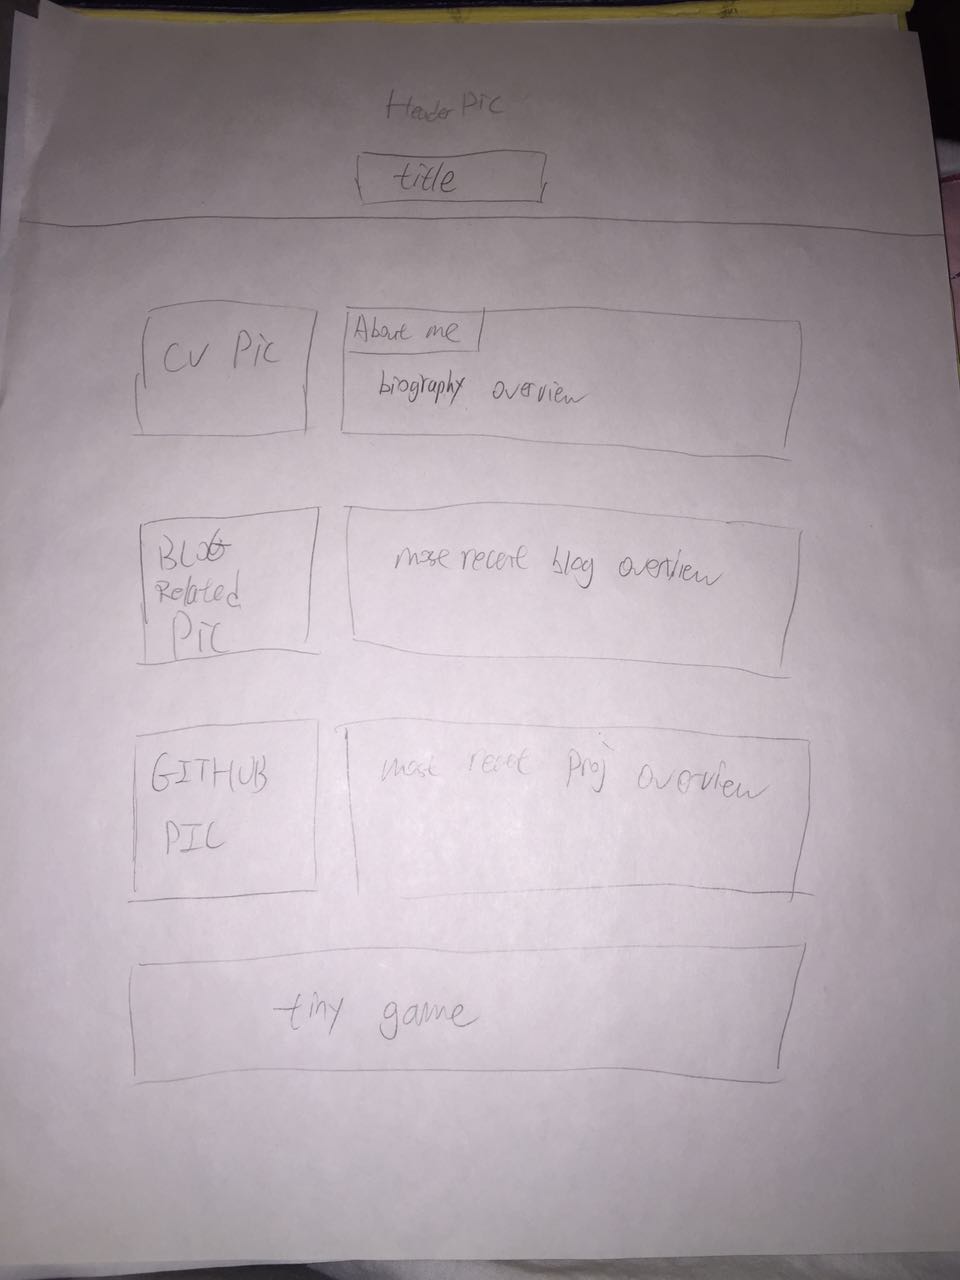 Header Pic
title
CV Pic
About me
biography overview
BLOG
Related
Pic
most recent blog overview
GITHUB
PIC
most recet Proj overview
tiny game